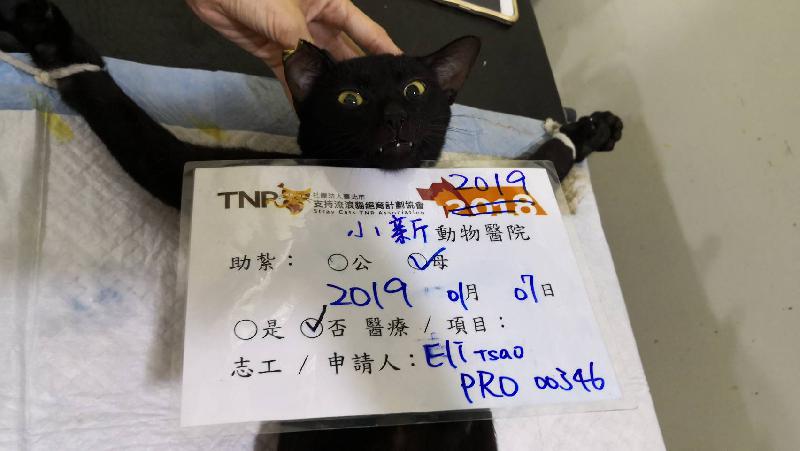 2019
TNR 社團法人臺北市
支持流浪貓絕育計劃協會 2018
Stray Cats TNR Association
小新動物醫院
助紮：○公 ○母
2019 01月 07日
○是 ○否 醫療 / 項目：
志工 / 申請人：Eli Tsao
PRO 00346